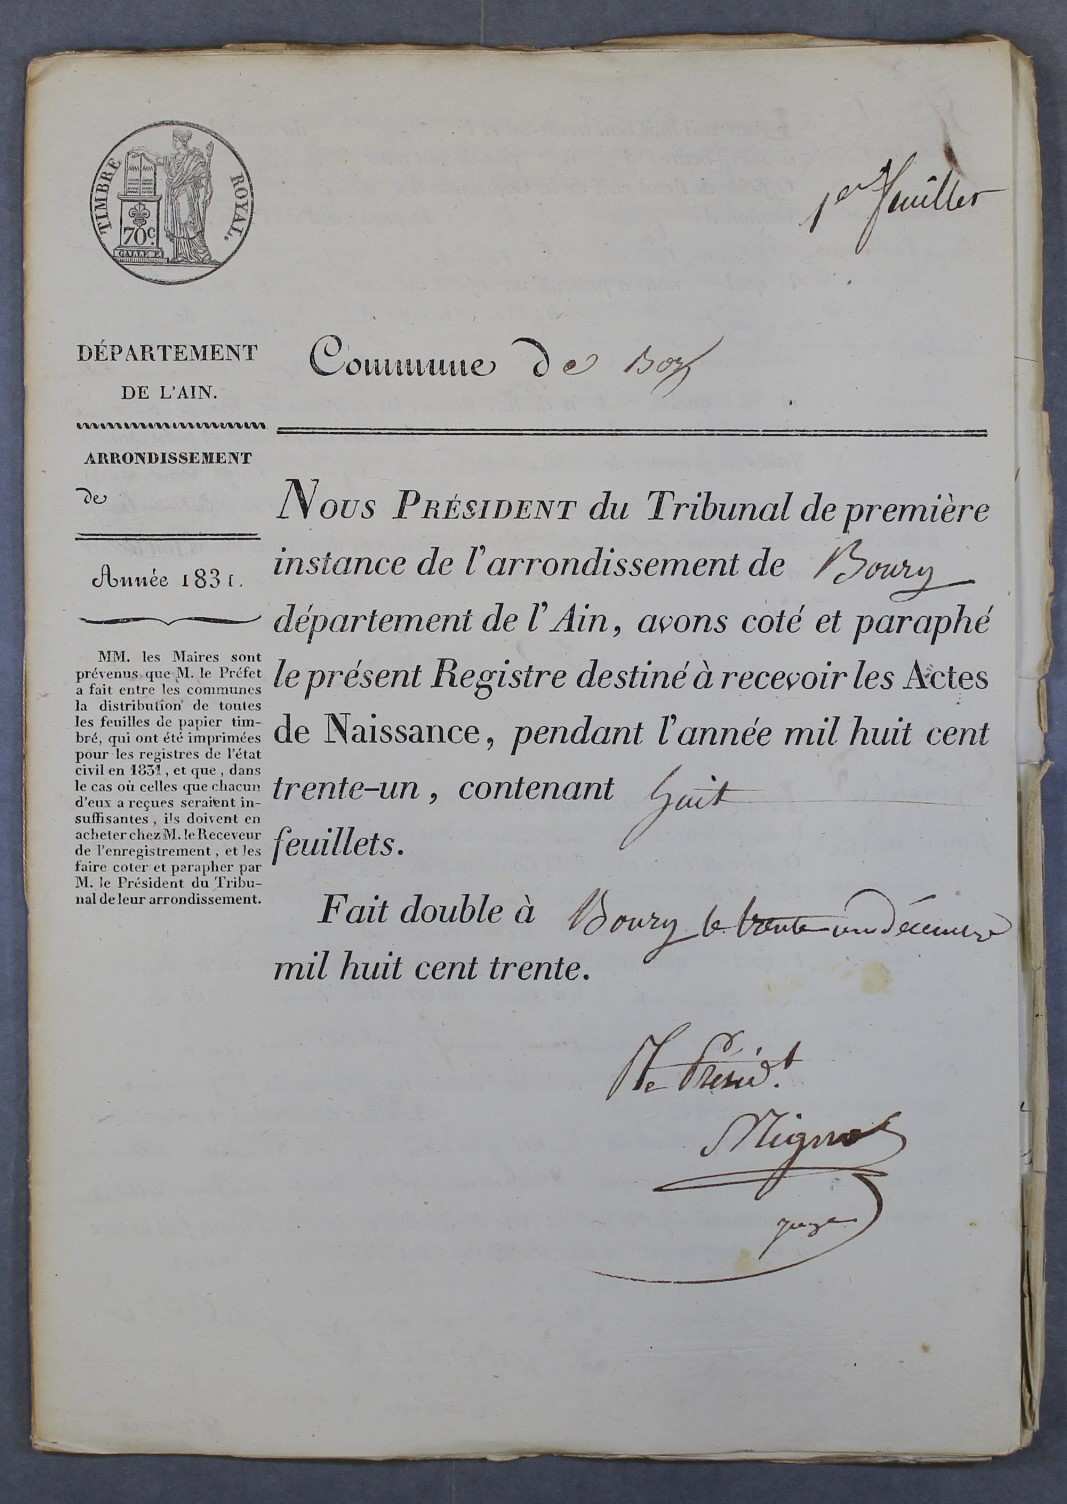 TIMBRE ROYAL.
70c.
GALLE F.
1er feuillet
DÉPARTEMENT
DE L'AIN.
Commune de Boz
ARRONDISSEMENT
de
Année 1831.
MM. les Maires sont
prévenus que M. le Préfet
a fait entre les communes
la distribution de toutes
les feuilles de papier tim-
bré, qui ont été imprimées
pour les registres de l'état
civil en 1831, et que, dans
le cas où celles que chacun
d'eux a reçues seraient in-
suffisantes, ils doivent en
acheter chez M. le Receveur
de l'enregistrement, et les
faire coter et parapher par
M. le Président du Tribu-
nal de leur arrondissement.
NOUS PRÉSIDENT du Tribunal de première
instance de l'arrondissement de Bourg
département de l'Ain, avons coté et paraphé
le présent Registre destiné à recevoir les Actes
de Naissance, pendant l'année mil huit cent
trente-un, contenant huit
feuillets.
Fait double à Bourg le trente un décembre
mil huit cent trente.
Le Présidt.
juge